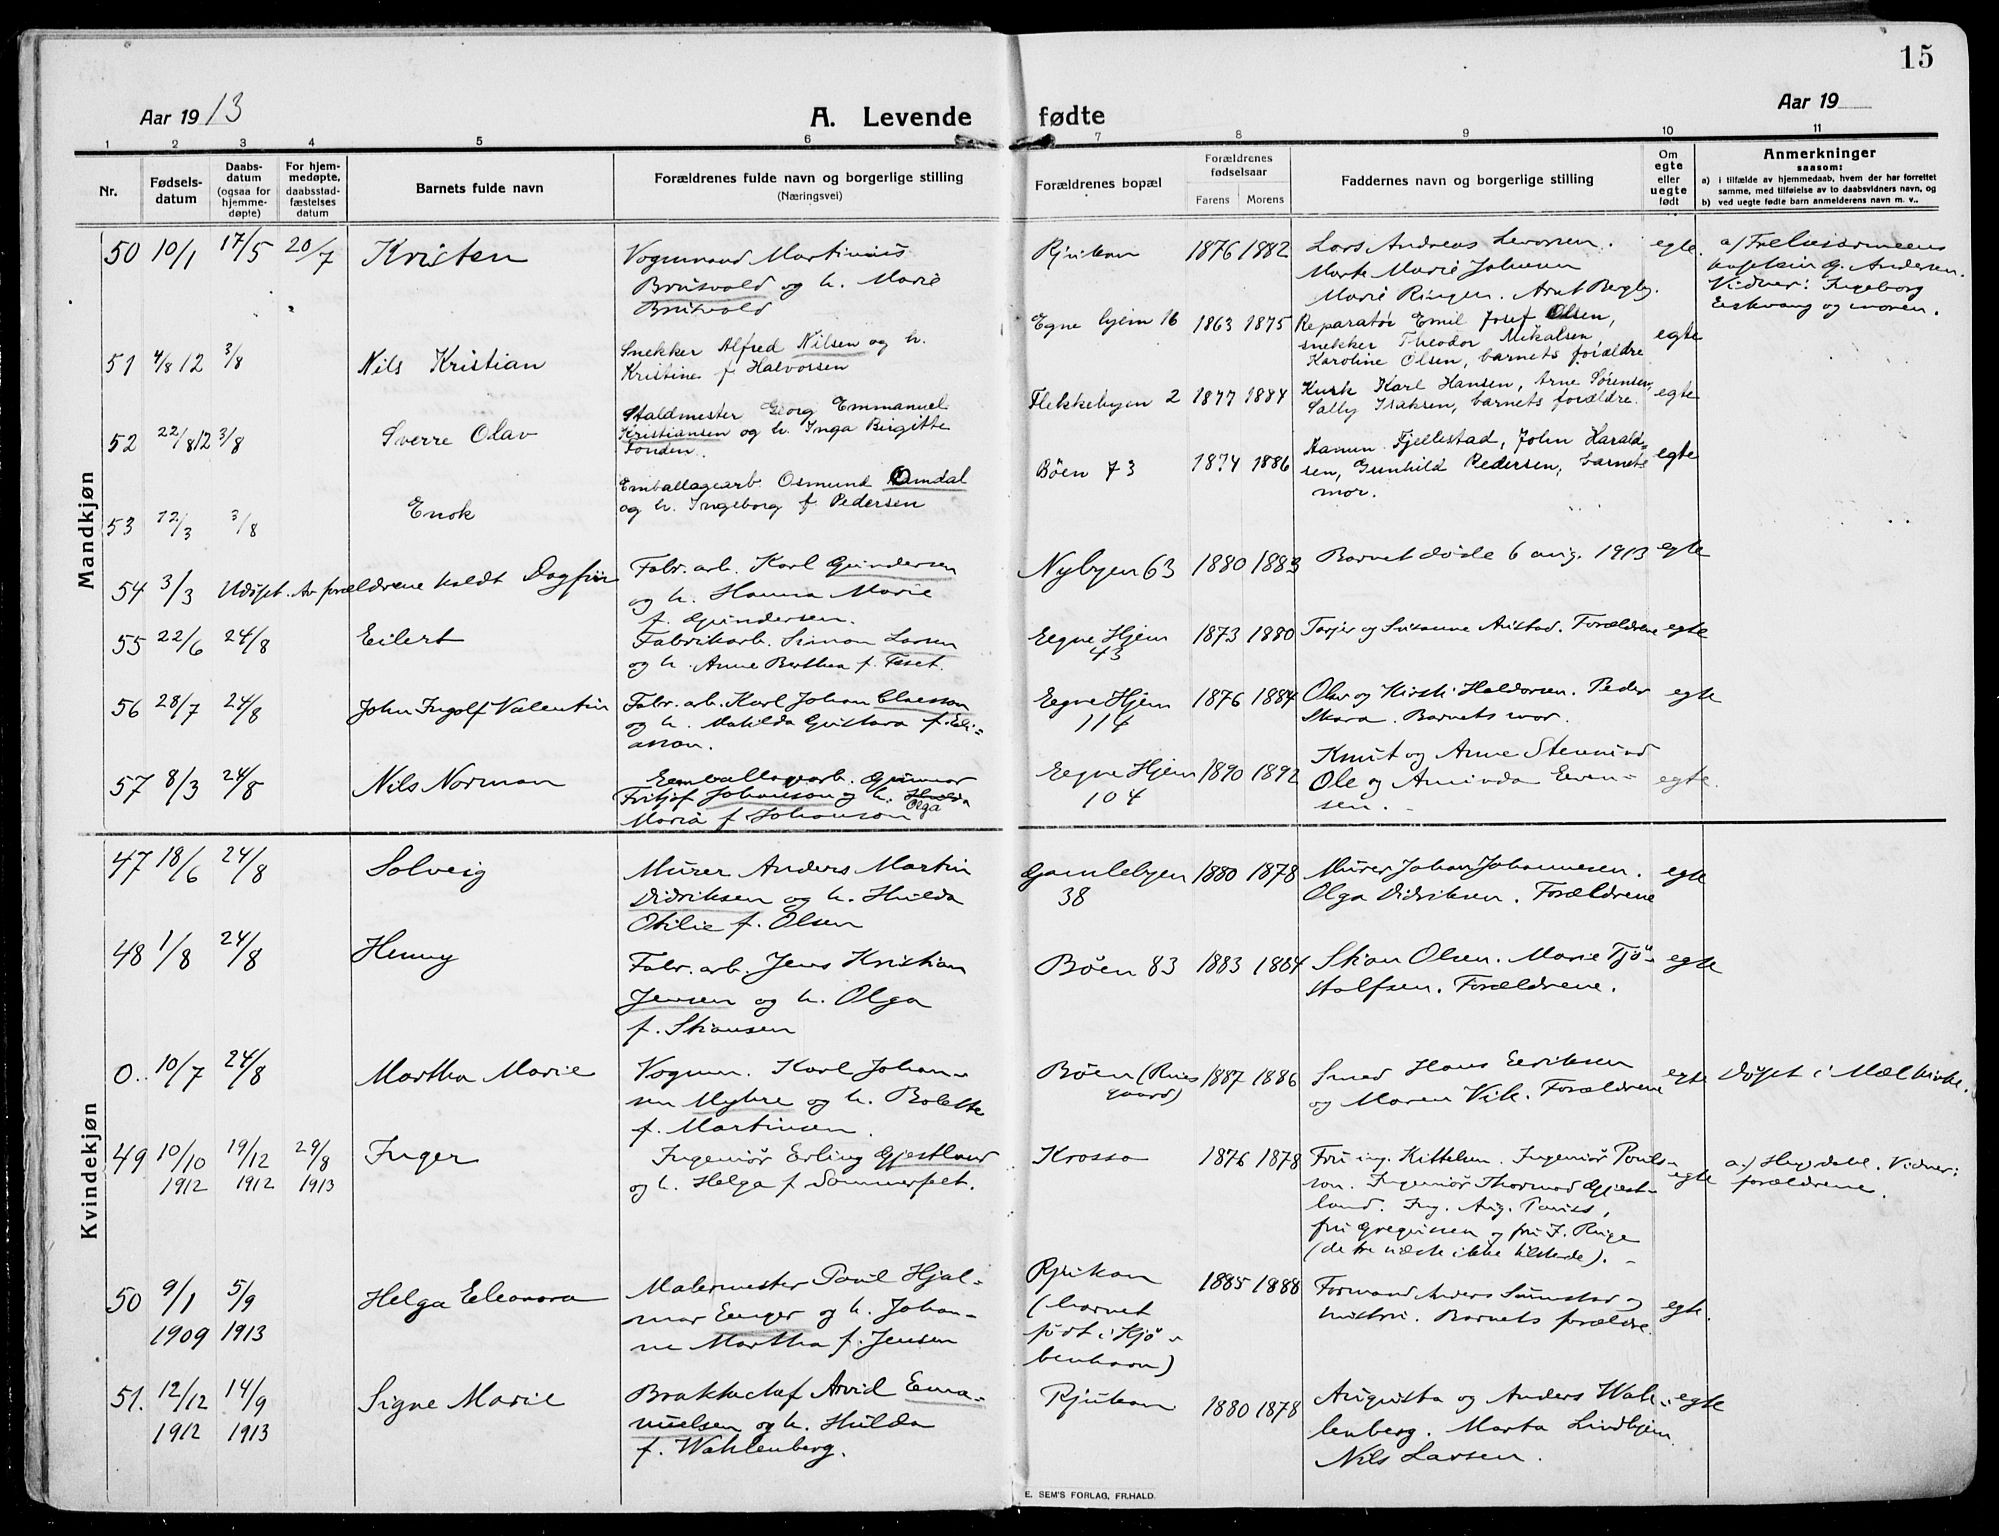 15
Aar 1913 A. Levende fødte Aar 19
1 2 3 4 5 6 7 8 9 10 11
Nr. Fødselsdatum Daabsdatum (ogsaa for hjemmedøpte) For hjemmedøpte, daabsstadfæstelses datum Barnets fulde navn Forældrenes fulde navn og borgerlige stilling (Næringsvei) Forældrenes bopæl Forældrenes fødselsaar Farens Morens Faddernes navn og borgerlige stilling Om egte eller uegte født Anmerkninger saasom: a) i tilfælde av hjemmedaab, hvem der har forrettet samme, med tilføielse av to daabsvidners navn, og b) ved uegte fødte barn anmelderens navn m. v..
Mandkjøn
50 10/1 17/5 20/7 Kristen Vognmand Martinius Rjukan 1876 1882 Lars Andreas Levorsen. egte. a) Frelsesarmeens
Brusvold og h. Marie Marte Marie Johnsen kaptein G. Andersen.
Brusvold Marie Ringen. Arnt Bergby. Vidner: Ingeborg
og moren.
51 4/8 12 3/8 Nils Kristian Snekker Alfred Nilsen og h. Egne hjem 16 1863 1875 Reparatør Emil Josef Olsen, egte
Kristine f Halvorsen snekker Theodor Mikalsen
Karoline Olsen, barnets forældre
52 22/8 12 3/8 Sverre Olav Staldmester Georg Emmanuel Flekkebyen 2 1877 1884 Kusk Karl Hansen, Arne Sørensen, egte
Kristiansen og h. Inga Birgitte Sally Isaksen, barnets forældre.
Fonden.
53 12/3 3/8 Enok Emballagearb. Osmund Omdal Bøen 73 1874 1886 Aamun Fjellestad, John Harald- egte
og h. Ingeborg f Pedersen sen, Gunhild Pedersen, barnets
mor.
54 3/3 Udøpt. Av forældrene kaldt Dagfin Fabr. arb. Karl Gundersen Nybyen 63 1880 1883 Barnet døde 6 aug. 1913 egte
og h. Hanna Marie
f. Gundersen.
55 22/6 24/8 Eilert Fabrikarb. Simon Larsen Egne Hjem 43 1873 1880 Tarjei og Susanne Aristad. Forældrene egte
og h. Anne Berthea f.
56 28/7 24/8 John Ingolf Valentin Fabr. arb. Karl Johan Claesson Egne Hjem 114 1876 1884 Olav og Kirsti Haldorsen. Peder egte
og h. Matilda Gustava f. Eli- Skara. Barnets mor.
asson.
57 8/3 24/8 Nils Norman Emballagearb. Gunnar Egne Hjem 104 1890 1892 Knut og Anne Stensrud egte.
Fritjof Johansson og h. Hulda Olga Ole og Aminda Even-
Maria f Johanson sen.
Kvindekjøn
47 18/6 24/8 Solveig Murer Anders Martin Gamlebyen 38 1880 1878 Murer Johan Johannesen. egte
Didriksen og h. Hulda Olga Didriksen. Forældrene
Otilie f. Olsen
48 1/8 24/8 Henny Fabr. arb. Jens Kristian Bøen 83 1883 1884 Stian Olsen. Marie Tjø- egte
Jensen og h. Olga stolfsen. Forældrene.
f. Stiansen
0. 10/7 24/8 Martha Marie Vognm. Karl Johan- Bøen (Ruis gaard) 1887 1886 Smed Hans Eriksen egte Døpt i Mæl kirke.
sen Myhre og h. Bolette og Maren Vik. Forældrene
f. Martinsen.
49 10/10 1912 19/12 1912 29/8 1913 Inger Ingeniør Erling Gjestland Krosso 1876 1878 Fru ing. Kittelsen. Ingeniør Pouls- egte a.) Heyerdahl. Vidner:
og h. Helga f Sommerfelt. son. Ingeniør Thormod Gjest- forældrene.
land. Ing. Aug.
fru Gregusson og fru J. Ringe
(de tre sidste ikke tilstede).
50 9/1 1909 5/9 1913 Helga Eleonora Malermester Poul Hjal- Rjukan 1885 1888 Formand Anders Sunstad og egte.
mar Enger og h. Johan- (barnet hustru. Barnets forældre.
ne Martha f. Jensen født i Kjø-
benhavn)
51. 12/12 1912 14/9 1913 Signe Marie Brakkechef Arvid Ema- Rjukan 1880 1878 Augusta og Anders Wah- egte
nuelsen og h. Hulda lenberg. Marta Lindhjem.
f. Wahlenberg. Nils Larsen.
E. SEM'S FORLAG, FR.HALD.